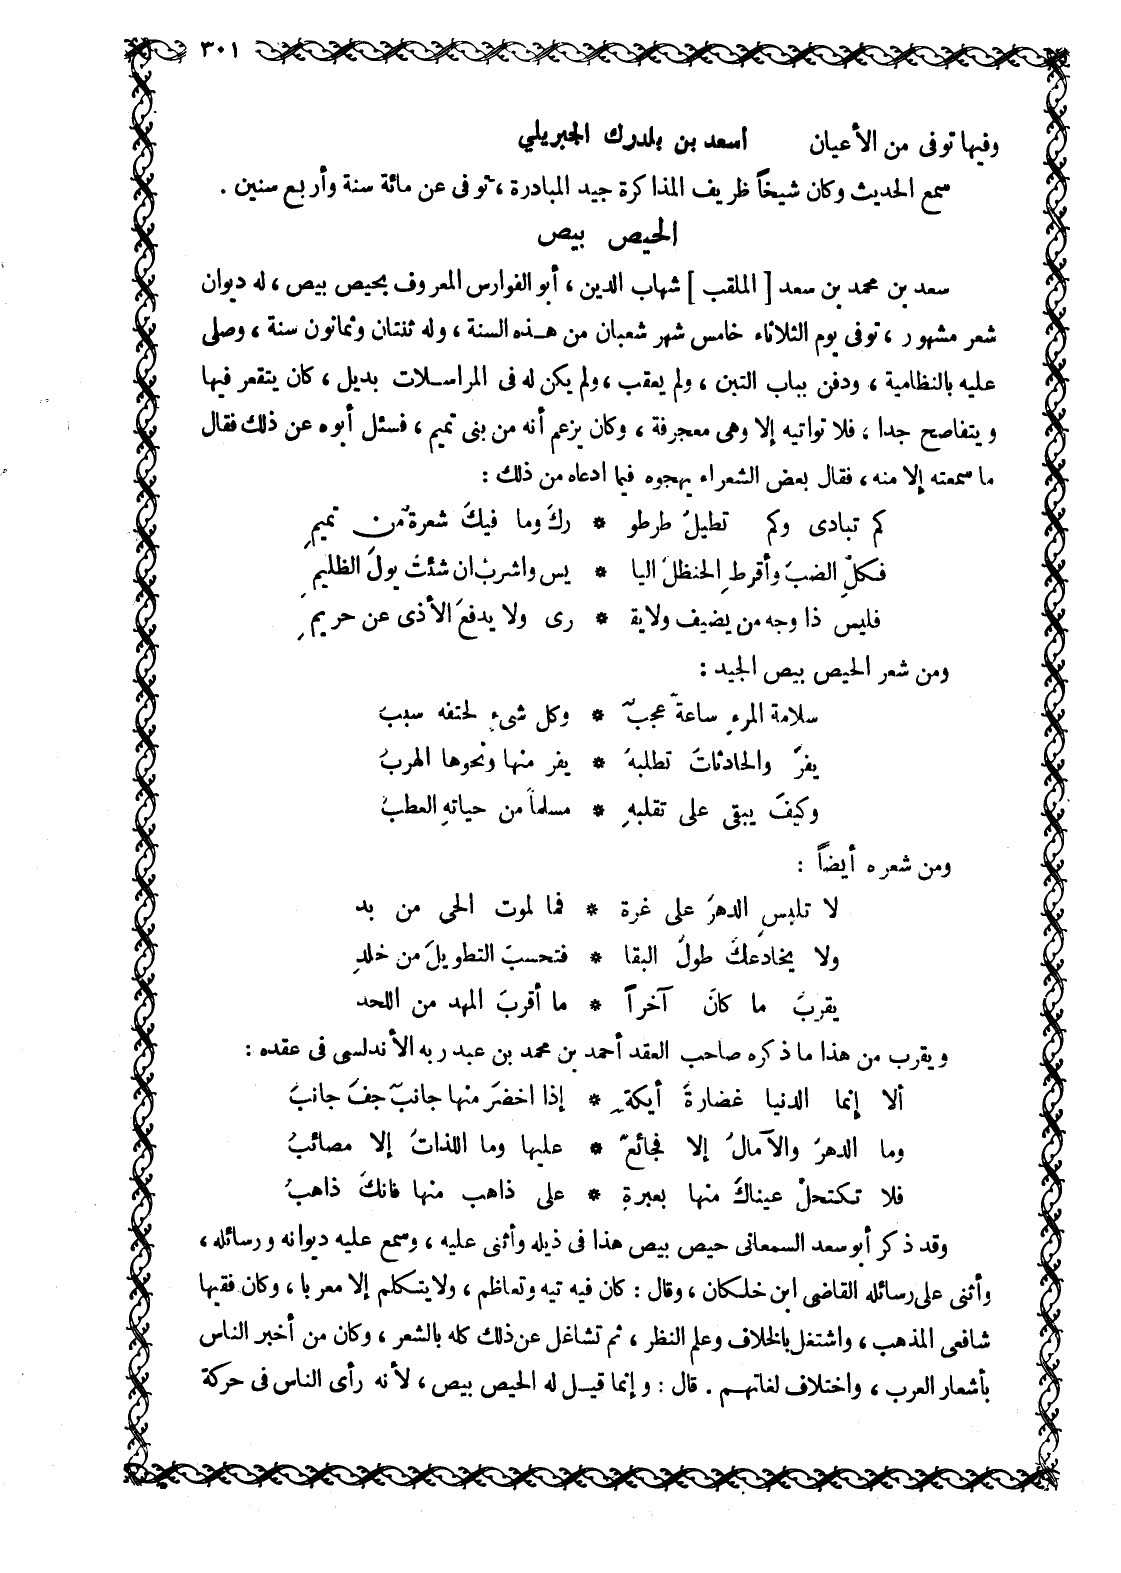 ٣٠١
وفيها توفى من الأعيان أسعد بن بلدرك الجبريلي
سمع الحديث وكان شيخاً ظريف المذاكرة جيد المبادرة ، توفى عن مائة سنة وأربع سنين .
الحيص بيص
سعد بن محمد بن سعد [ الملقب ] شهاب الدين ، أبو الفوارس المعروف بحيص بيص ، له ديوان
شعر مشهور ، توفى يوم الثلاثاء خامس شهر شعبان من هذه السنة ، وله ثنتان وثمانون سنة ، وصلى
عليه بالنظامية ، ودفن بباب التبن ، ولم يعقب ، ولم يكن له فى المراسلات بديل ، كان يتقعر فيها
ويتفاصح جدا ، فلا تواتيه إلا وهى معجرفة ، وكان يزعم أنه من بنى تميم ، فسئل أبوه عن ذلك فقال
ما سمعته إلا منه ، فقال بعض الشعراء يهجوه فيما ادعاه من ذلك :
كم تبادى وكم تطيلُ طرطو * ركَ وما فيكَ شعرة من تميمِ
فكلِ الضبَ وأقرطِ الحنظلَ اليا * بس واشربْ ان شئتَ بولَ الظليمِ
فليس ذا وجه من يضيف ولا يق * رى ولا يدفعَ الأذى عن حريمِ
ومن شعر الحيص بيص الجيد :
سلامة المرءِ ساعةً عجبٌ * وكل شىءٍ لحتفه سببُ
يفرُ والحادثاتُ تطلبهُ * يفر منها ونحوها الهربُ
وكيفَ يبقى على تقلبهِ * مسلماً من حياتهِ العطبُ
ومن شعره أيضاً :
لا تلبسِ الدهرَ على غرة * فما لموت الحى من بد
ولا يخادعكَ طولُ البقا * فتحسبَ التطويلَ من خلدِ
يقربُ ما كانَ آخراً * ما أقربَ المهد من اللحد
ويقرب من هذا ما ذكره صاحب العقد أحمد بن محمد بن عبد ربه الأندلسى فى عقده :
ألا إنما الدنيا غضارةُ أيكةٍ * إذا اخضرَ منها جانبٌ جفَ جانبُ
وما الدهرُ والآمالُ إلا فجائعٌ * عليها وما اللذاتُ إلا مصائبُ
فلا تكتحلْ عيناكَ منها بعبرةٍ * على ذاهب منها فانكَ ذاهبُ
وقد ذكر أبو سعد السمعانى حيص بيص هذا فى ذيله وأثنى عليه ، وسمع عليه ديوانه ورسائله ،
وأثنى على رسائله القاضى ابن خلكان ، وقال : كان فيه تيه وتعاظم ، ولا يتكلم إلا معربا ، وكان فقيها
شافعى المذهب ، واشتغل بالخلاف وعلم النظر ، ثم تشاغل عن ذلك كله بالشعر ، وكان من أخبر الناس
بأشعار العرب ، واختلاف لغاتهم . قال : وإنما قيل له الحيص بيص ، لأنه رأى الناس فى حركة